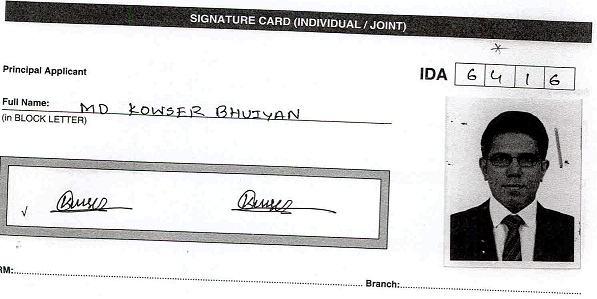 SIGNATURE CARD (INDIVIDUAL / JOINT)
*
Principal Applicant
IDA 6 4 1 6
Full Name: MD KOWSER BHUIYAN
(in BLOCK LETTER)
RM:
Branch: